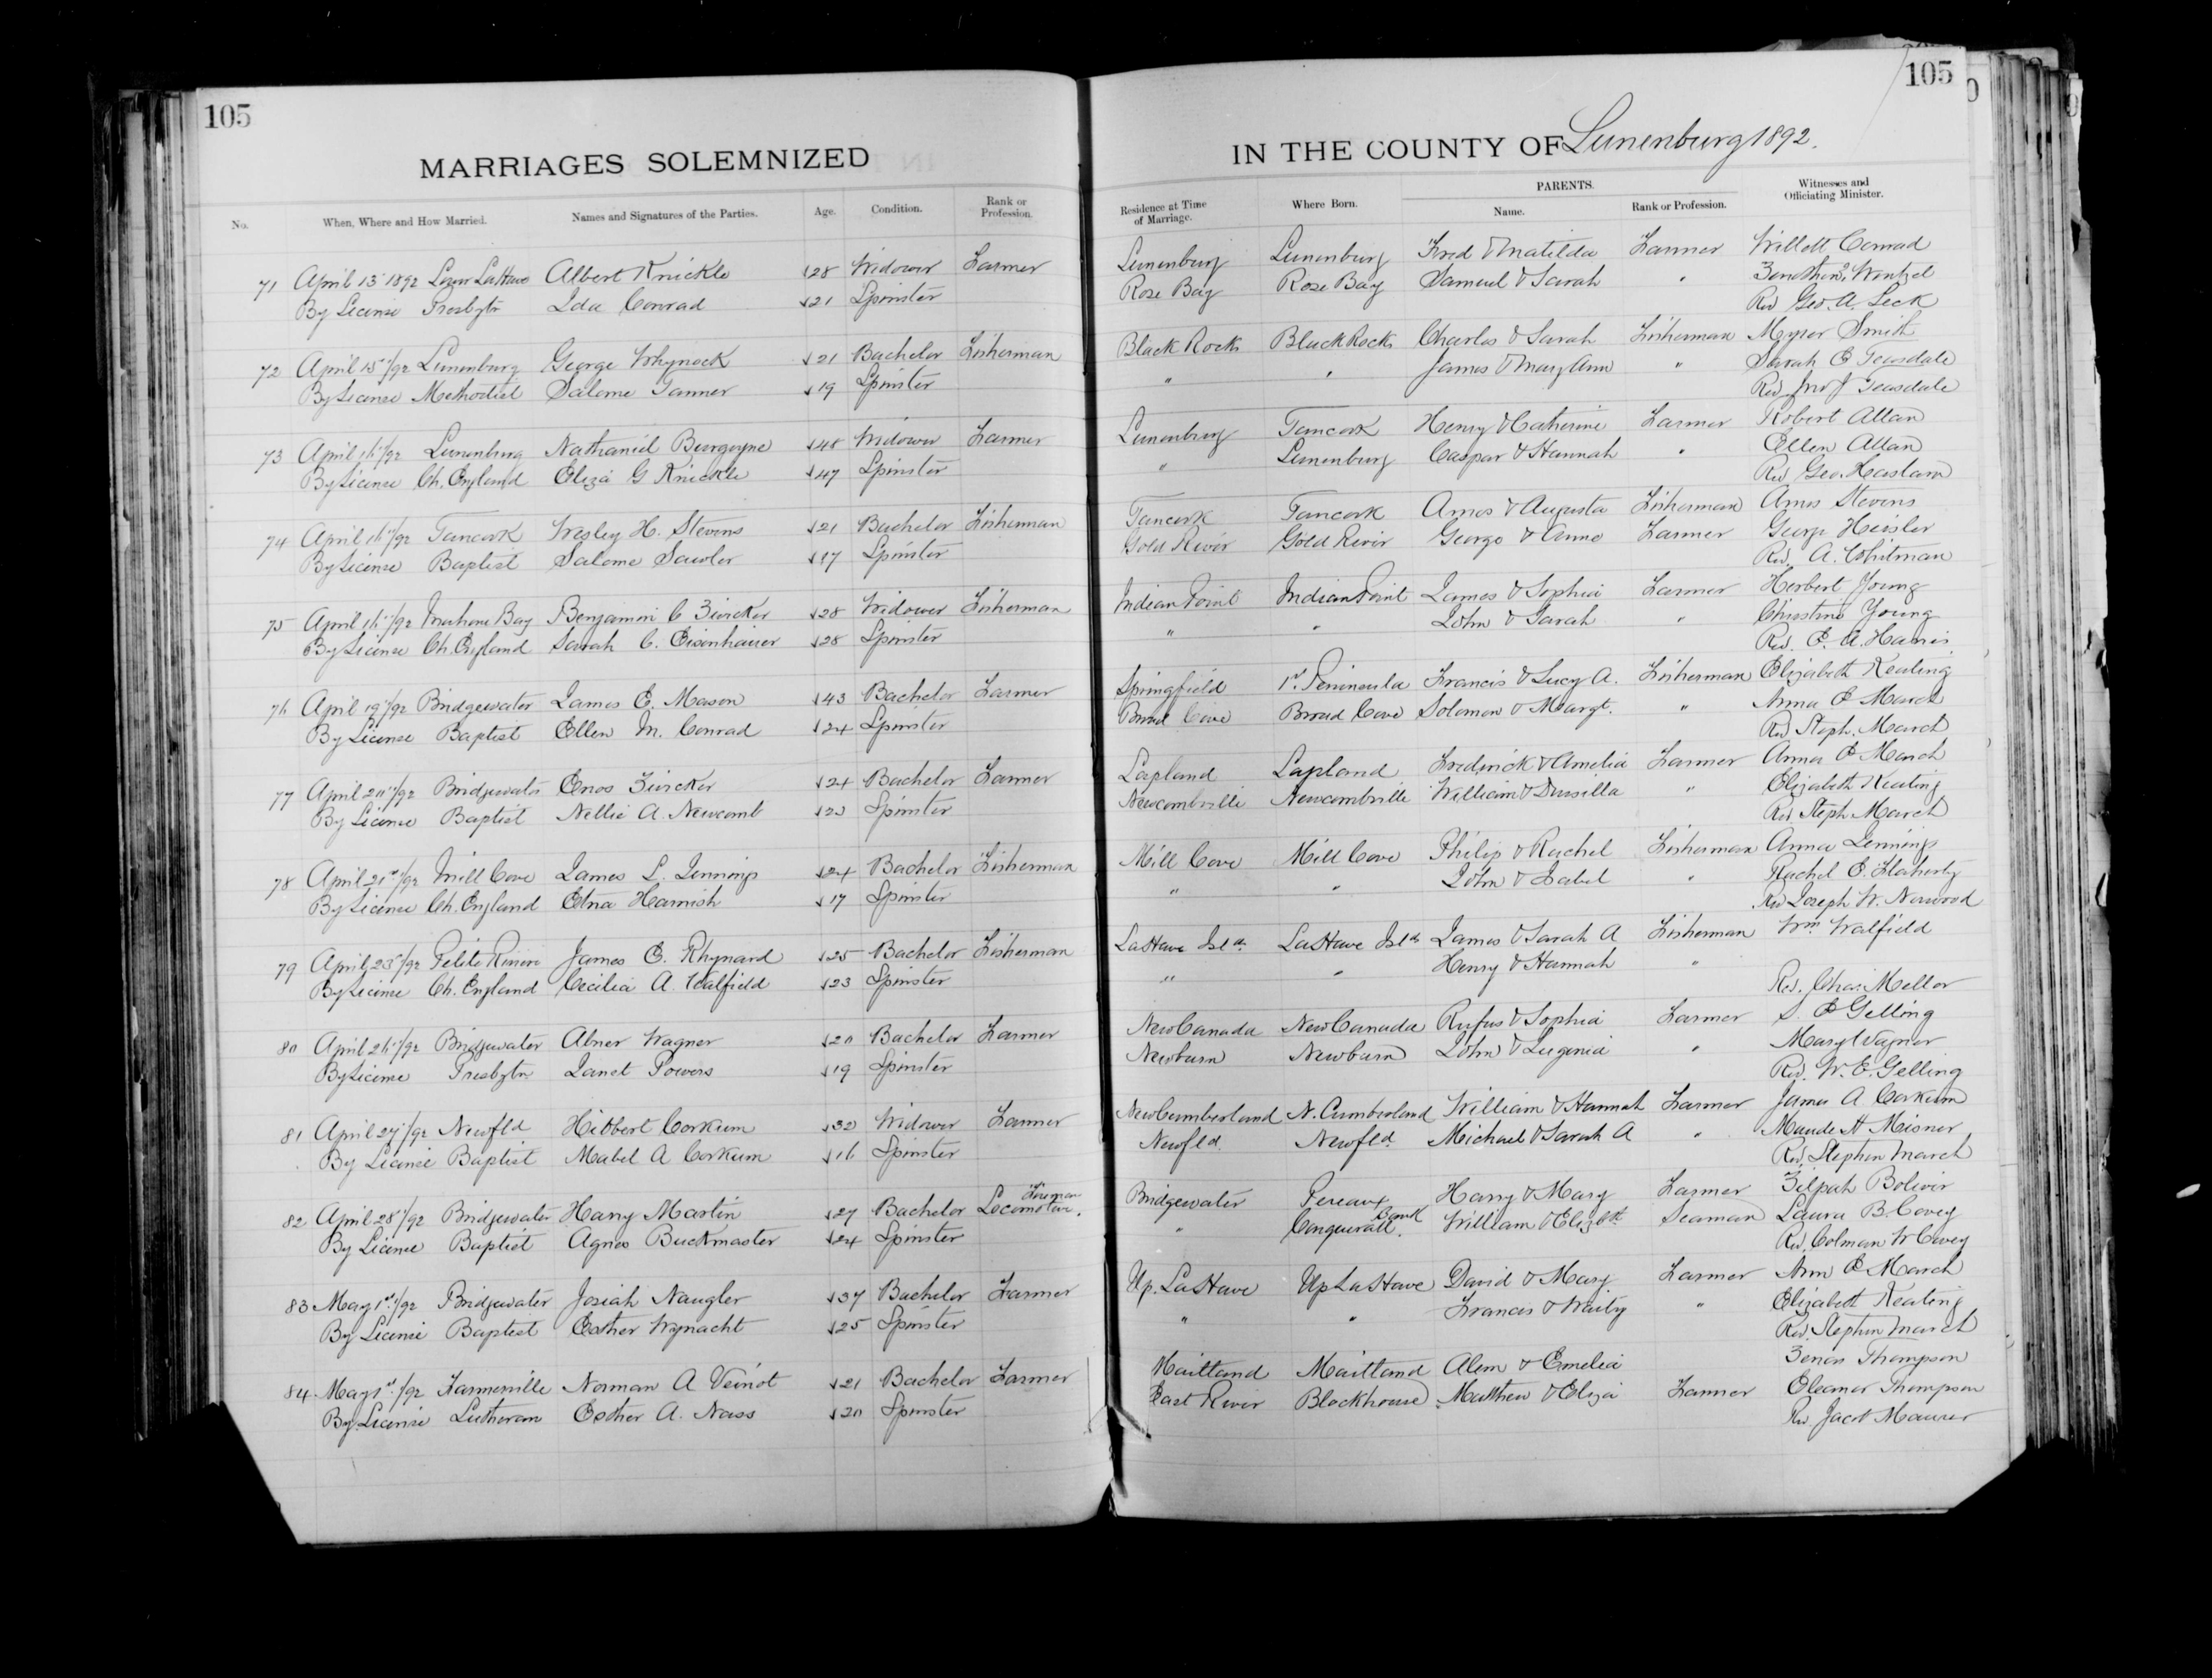 105
MARRIAGES SOLEMNIZED
No. When, Where and How Married. Names and Signatures of the Parties. Age. Condition. Rank or Profession.
71 April 13 1892 Lower LaHave Albert Knickle 28 Widower Farmer
By License Presbytn Ida Conrad 21 Spinster
72 April 15"/92 Lunenburg George Whynock 21 Bachelor Fisherman
By License Methodist Salome Tanner 19 Spinster
73 April 16"/92 Lunenburg Nathaniel Burgoyne 48 Widower Farmer
By License Ch. England Eliza G Knickle 47 Spinster
74 April 16"/92 Tancook Wesley H. Stevens 21 Bachelor Fisherman
By License Baptist Salome Sawler 17 Spinster
75 April 16"/92 Mahone Bay Benjamin C Zwicker 28 Widower Fisherman
By License Ch. England Sarah C. Eisenhauer 28 Spinster
76 April 19"/92 Bridgewater James E. Mason 43 Bachelor Farmer
By License Baptist Ellen M. Conrad 24 Spinster
77 April 20"/92 Bridgewater Enos Zwicker 24 Bachelor Farmer
By License Baptist Nellie A. Newcomb 23 Spinster
78 April 21st/92 Mill Cove James L. Jennings 24 Bachelor Fisherman
By License Ch. England Etna Harnish 17 Spinster
79 April 23"/92 Petite Riviere James E. Rhynard 25 Bachelor Fisherman
By License Ch. England Cecilia A. Walfield 23 Spinster
80 April 26"/92 Bridgewater Abner Wagner 20 Bachelor Farmer
By License Presbytn Janet Powers 19 Spinster
81 April 27"/92 Newfld Hibbert Corkum 32 Widower Farmer
By License Baptist Mabel A Corkum 16 Spinster
82 April 28"/92 Bridgewater Harry Martin 27 Bachelor Fireman Locomotive.
By License Baptist Agnes Buckmaster 24 Spinster
83 May 1st/92 Bridgewater Josiah Naugler 37 Bachelor Farmer
By License Baptist Esther Wynacht 25 Spinster
84 May 1st/92 Farmerville Norman A Veinot 21 Bachelor Farmer
By License Lutheran Esther A. Nass 20 Spinster
105
IN THE COUNTY OF Lunenburg 1892.
Residence at Time of Marriage. Where Born. PARENTS. Name. Rank or Profession. Witnesses and Officiating Minister.
Lunenburg Lunenburg Fred & Matilda Farmer Willett Conrad
Rose Bay Rose Bay Samuel & Sarah " Wentzel
Rev Geo. A. Leck
Black Rocks Black Rocks Charles & Sarah Fisherman Smith
" " James & Mary Ann " Sarah E Teasdale
Rev Jno J Teasdale
Lunenburg Tancook Henry & Catherine Farmer Robert Allan
" Lunenburg Caspar & Hannah " Ellen Allan
Rev Geo. Haslam
Tancook Tancook Amos & Augusta Fisherman Amos Stevens
Gold River Gold River George & Anne Farmer George Heisler
Rev. A. Whitman
Indian Point Indian Point James & Sophia Farmer Herbert Young
" " John & Sarah " Christine Young
Rev. E. A. Harris.
Springfield 1st Peninsula Francis & Lucy A. Fisherman Elizabeth Keating
Broad Cove Broad Cove Solomon & Margt. " Anna E March
Rev Steph. March
Lapland Lapland Fredrick & Amelia Farmer Anna E March
Newcombville Newcombville William & Drusilla " Elizabeth Keating
Rev Steph March
Mill Cove Mill Cove Philip & Rachel Fisherman Anna Jennings
" " John & Isabel " Rachel E. Flaherty
Rev Joseph W. Norwood
LaHave Isld. LaHave Isld James & Sarah A Fisherman Wm Walfield
" " Henry & Hannah "
Rev. Chas. Mellor
New Canada New Canada Rufus & Sophia Farmer S. E Gelling
Newburn Newburn John & Lugenia " Mary Wagner
Rev. W. E. Gelling
New Cumberland N. Cumberland William & Hannah Farmer James A. Corkum
Newfld. Newfld. Michael & Sarah A " Maude H Misner
Rev. Stephen March
Bridgewater Pereaux Harry & Mary Farmer Zilpah Boliver
" Conquerall Bank. William & Elizbth Seaman Laura B. Covey
Rev. Colman W Covey
Up. LaHave Up LaHave David & Mary Farmer Ann E March
" " Francis & Waity " Elizabeth Keating
Rev. Stephen March
Maitland Maitland Alem & Emelia Zenas Thompson
East River Blockhouse Matthew & Eliza Farmer Eleanor Thompson
Rev. Jacob Maurer